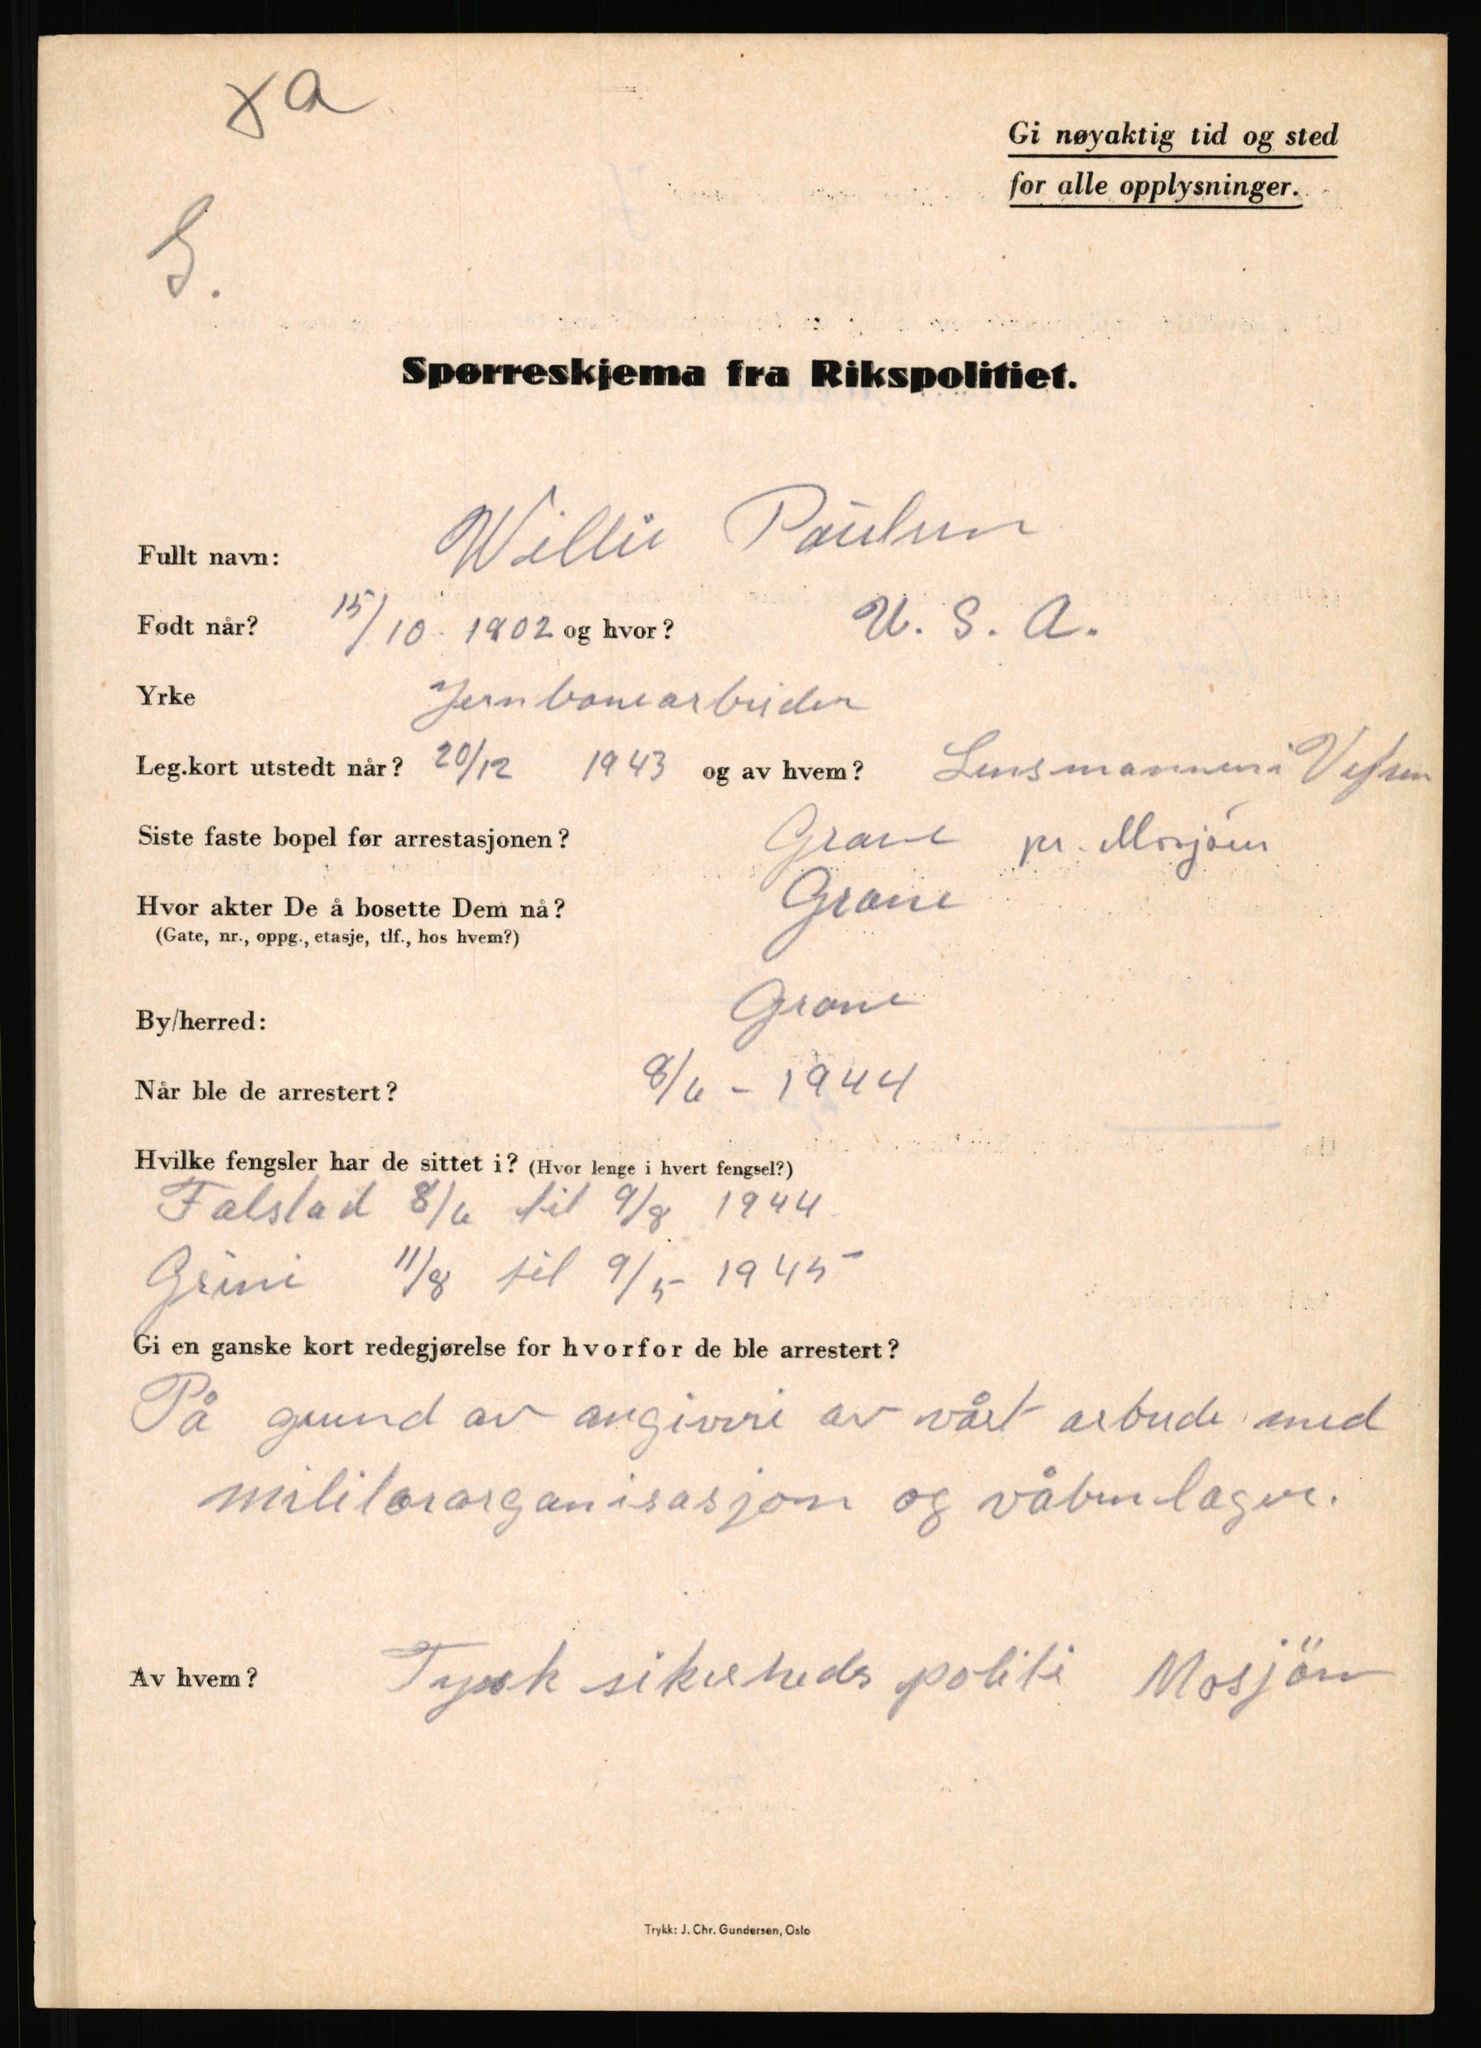 xa
Gi nøyaktig tid og sted
for alle opplysninger.
S.
Spørreskjema fra Rikspolitiet.
Fullt navn: Willie Paulsen
Født når? 15/10 1902 og hvor? U. S. A.
Yrke Jernbanearbeider
Leg.kort utstedt når? 20/12 1943 og av hvem? Lensmannen i Vefsen
Siste faste bopel før arrestasjonen? Grane pr. Mosjøen
Hvor akter De å bosette Dem nå? Grane
(Gate, nr., oppg., etasje, tlf., hos hvem?)
By/herred: Grane
Når ble de arrestert? 8/6 - 1944
Hvilke fengsler har de sittet i? (Hvor lenge i hvert fengsel?)
Falstad 8/6 til 9/8 1944
Grini 11/8 til 9/5 1945
Gi en ganske kort redegjørelse for hvorfor de ble arrestert?
På grund av angiveri av vårt arbeide med
militærorganisasjon og våbenlager.
Av hvem? Tysk sikerheds politi Mosjöen
Trykk: J. Chr. Gundersen, Oslo